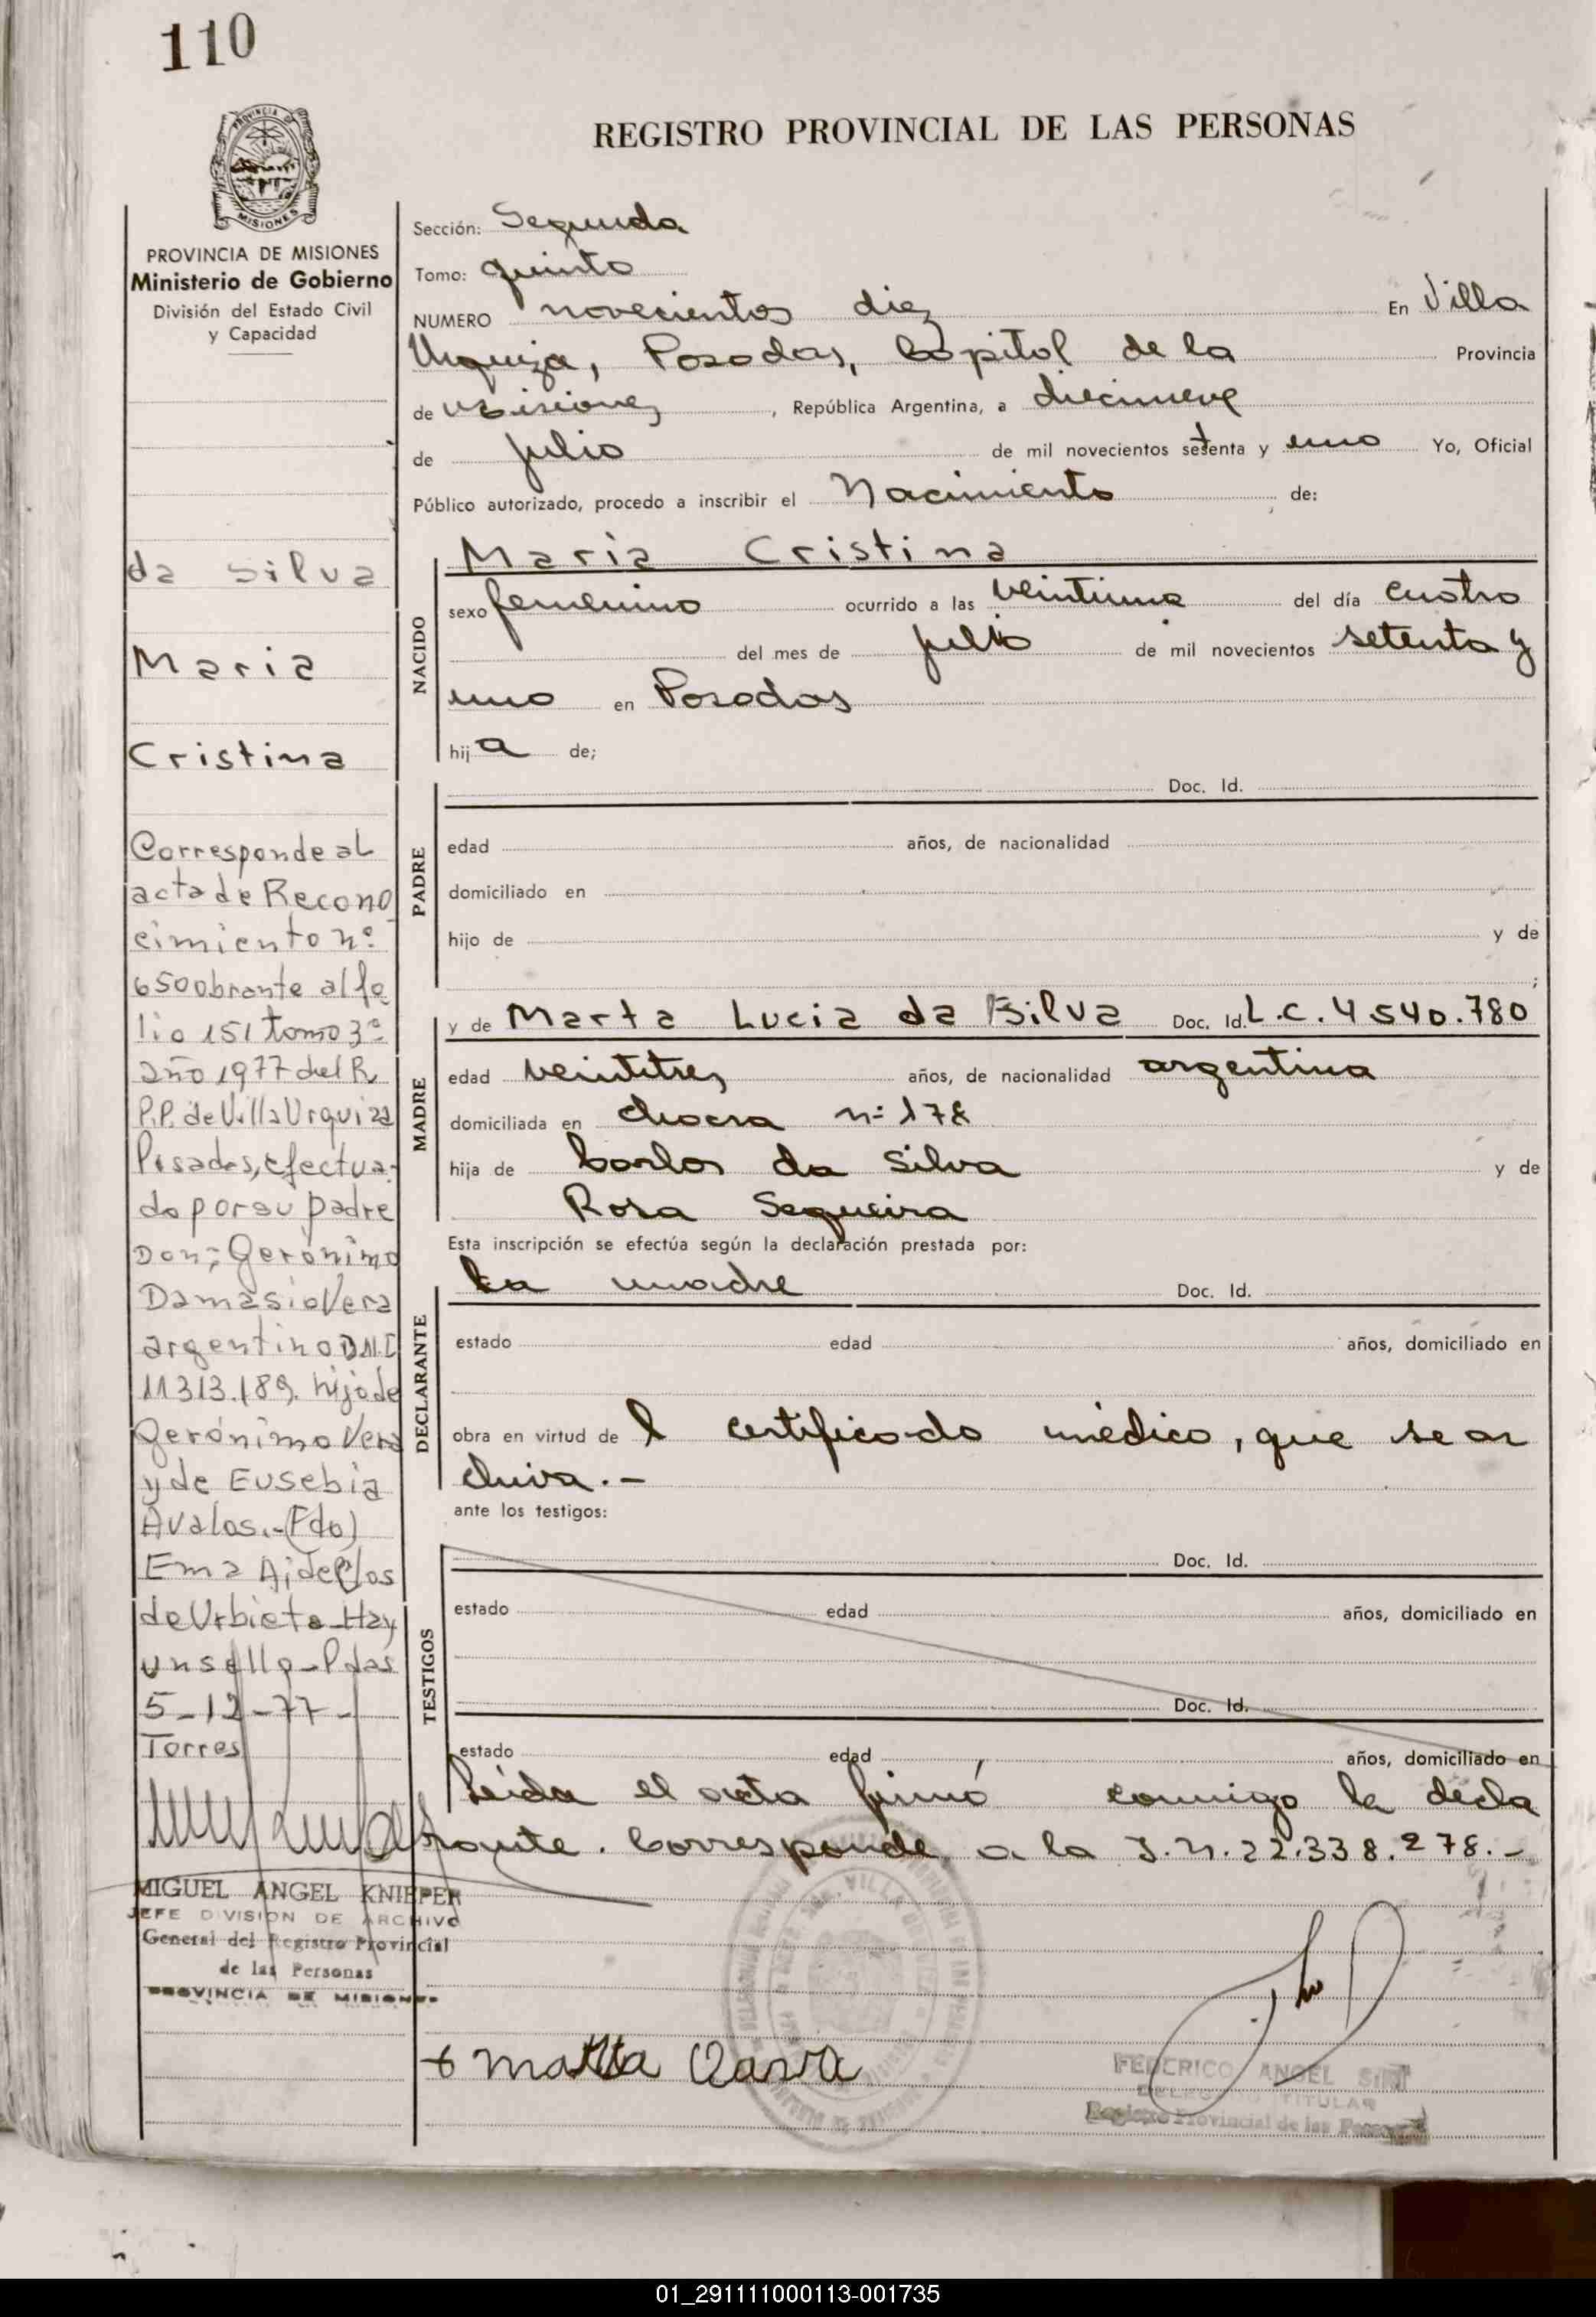 110
PROVINCIA DE
MISIONES
REGISTRO PROVINCIAL DE LAS PERSONAS
PROVINCIA DE MISIONES
Ministerio de Gobierno
División del Estado Civil
y Capacidad
da Silva
Maria
Cristina
Corresponde al
acta de Recono
cimiento nº
650 obrante al fo
lio 151 tomo 3º
año 1977 del R.
P.P. de Villa Urquiza
Posadas, efectua-
do por su padre
Don: Gerónimo
Damasio Vera
argentino D.N.I
11313.189. hijo de
Gerónimo Vera
y de Eusebia
Avalos.-(Fdo)
Ema Aide
de Urbieta-Hay
un sello-Pdas
5-12-77-
Torres
MIGUEL ANGEL KNIEPER
JEFE DIVISION DE ARCHIVO
General del Registro Provincial
de las Personas
PROVINCIA DE MISIONES
Sección: Segunda
Tomo: quinto
NUMERO novecientos diez En Villa
Urquiza, Posadas, Capital de la Provincia
de Misiones, República Argentina, a diecinueve
de julio de mil novecientos setenta y uno Yo, Oficial
Público autorizado, procedo a inscribir el Nacimiento de:
NACIDO
Maria Cristina
sexo femenino ocurrido a las veintiuna del día cuatro
del mes de julio de mil novecientos setenta y
uno en Posadas
hija de;
PADRE
Doc. Id.
edad años, de nacionalidad
domiciliado en
hijo de y de
;
MADRE
y de Marta Lucia da Silva Doc. Id. L.C. 4540.780
edad veintitres años, de nacionalidad argentina
domiciliada en chacra nº 178
hija de Carlos da Silva y de
Rosa Sequeira
Esta inscripción se efectúa según la declaración prestada por:
DECLARANTE
La madre Doc. Id.
estado edad años, domiciliado en
obra en virtud de l certificado médico, que se ar
chiva.-
ante los testigos:
TESTIGOS
Doc. Id.
estado edad años, domiciliado en
Doc. Id.
estado edad años, domiciliado en
Leida el acta firmó conmigo la decla
rante. Corresponde a la I.N. 22.338.278.-
Marta
FEDERICO ANGEL
DELEGADO TITULAR
Registro Provincial de las Personas
01_291111000113-001735